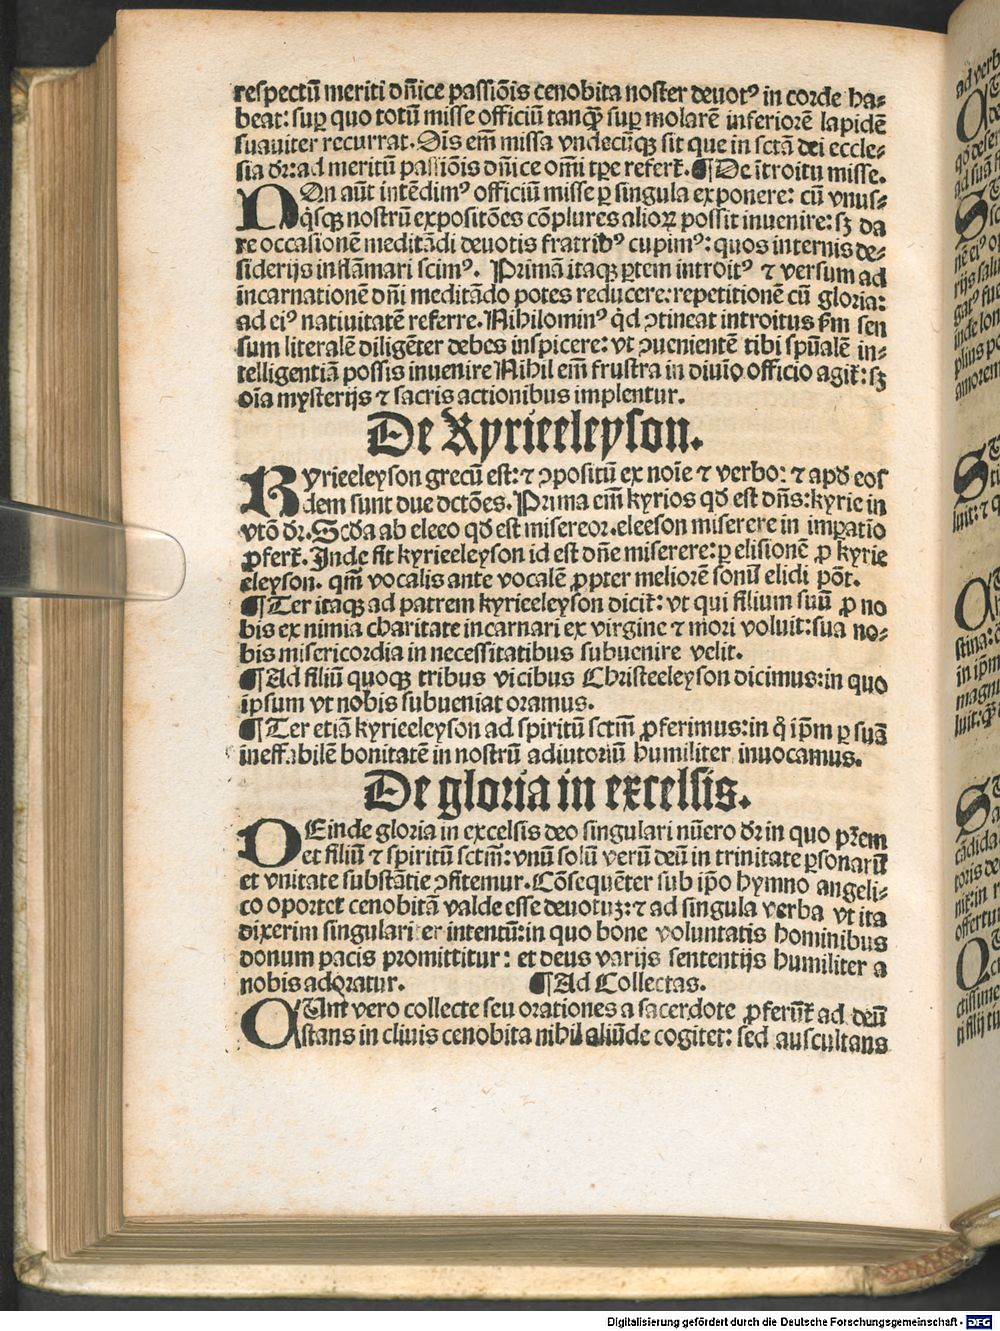 respectū meriti dn̄ice passiōis cenobita noster deuotꝰ in corde ha⸗
beat: suꝑ quo totū misse officiū tanꝙ̄ suꝑ molarē inferiorē lapidē
suauiter recurrat. Oīs em̄ missa vndecūꝗ sit que in sctā dei eccle⸗
sia dr̄: ad meritū passiōis dn̄ice om̄i tꝑe refert̄. ¶ De ītroitu misse.
NOn aūt intēdimꝰ officiū misse ꝑ singula exponere: cū vnus⸗
q̇sꝗ nostrū expositōes cōplures alioꝝ possit inuenire: sꝫ da
re occasionē meditādi deuotis fratribꝰ cupimꝰ: quos internis de⸗
siderijs inflāmari scimꝰ. Primā itaꝗ ꝑtem introitꝰ ⁊ versum ad
incarnationē dn̄i meditādo potes reducere: repetitionē cū gloria:
ad eiꝰ natiuitatē referre. Nihilominꝰ q̇d ꝯtineat introitus ẜm sen
sum literalē diligēter debes inspicere: vt ꝯuenientē tibi spūalē in⸗
telligentiā possis inuenire Nihil em̄ frustra in diuīo officio agit̄: sꝫ
oīa mysterijs ⁊ sacris actionibus implentur.
De Kyrieeleyson.
KYrieeleyson grecū est: ⁊ ꝯpositū ex noīe ⁊ verbo: ⁊ apd̄ eos
dem sunt due dctōes. Prima em̄ kyrios qd̄ est dn̄s: kyrie in
vtō dr̄. Scd̄a ab eleeo qd̄ est misereor. eleeson miserere in imꝑatio
ꝓfert̄. Inde fit kyrieeleyson id est dn̄e miserere: ꝑ elisionē ꝓ kyrie
eleyson. qm̄ vocalis ante vocalē ꝓpter meliorē sonū elidi pōt.
¶ Ter itaꝗ ad patrem kyrieeleyson dicit̄: vt qui filium suū ꝓ no
bis ex nimia charitate incarnari ex virgine ⁊ mori voluit: sua no⸗
bis misericordia in necessitatibus subuenire velit.
¶ Ad filiū quoꝗ tribus vicibus Christeeleyson dicimus: in quo
ipsum vt nobis subueniat oramus.
¶ Ter etiā kyrieeleyson ad spiritū sctm̄ ꝓferimus: in q̊ ip̄m ꝑ suā
ineffabilē bonitatē in nostrū adiutoriū humiliter inuocamus.
De gloria in excelsis.
DEinde gloria in excelsis deo singulari nūero dr̄ in quo pr̄em
et filiū ⁊ spiritū sctm̄: vnū solū verū deū in trinitate ꝑsonarū
et vnitate substātie ꝯfitemur. Cōsequēter sub ip̄o hymno angeli⸗
co oportet cenobitā valde esse deuotuꝫ: ⁊ ad singula verba vt ita
dixerim singulariter intentū: in quo bone voluntatis hominibus
donum pacis promittitur: et deus varijs sententijs humiliter a
nobis adoratur. ¶ Ad Collectas.
QUm̄ vero collecte seu orationes a sacerdote ꝓferūt̄ ad deū
stans in cliuis cenobita nihil aliūde cogitet: sed auscultans
Digitalisierung gefördert durch die Deutsche Forschungsgemeinschaft - DFG